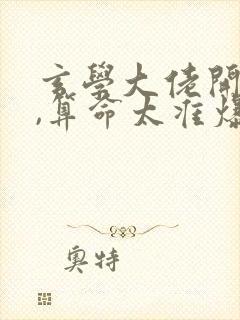 玄學大佬開
,算命太准爆
奧特